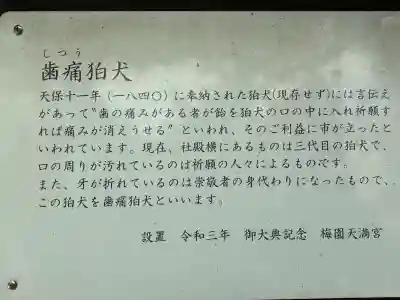 しつう
歯痛狛犬
天保十一年（一八四〇）に奉納された狛犬(現存せず)には言伝え
があって〝歯の痛みがある者が飴を狛犬の口の中に入れ祈願す
れば痛みが消えうせる〟といわれ、そのご利益に市が立ったと
いわれています。現在、社殿横にあるものは三代目の狛犬で、
口の周りが汚れているのは祈願の人々によるものです。
また、牙が折れているのは崇敬者の身代わりになったもので、
この狛犬を歯痛狛犬といいます。
設置　令和三年　御大典記念　梅園天満宮